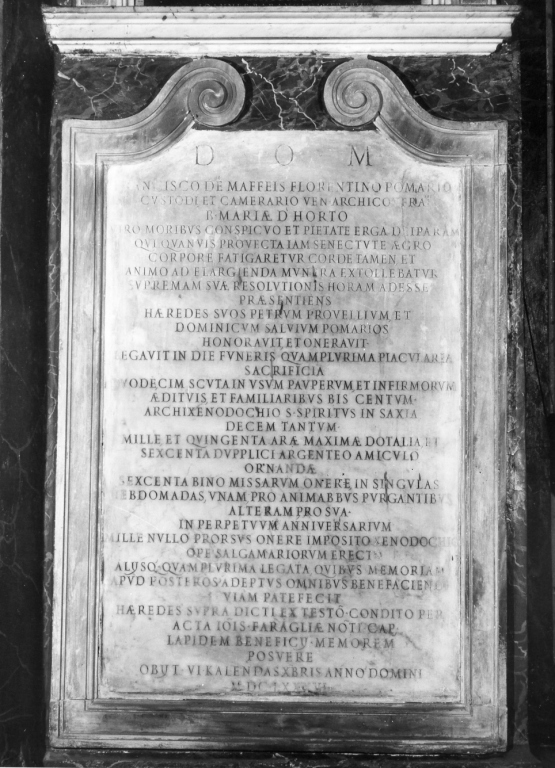 D O M
DE MAFFEIS FLORENTINO POMARIO
CVSTODI ET CAMERARIO VEN ARCHICONFRAT
B MARIÆ D'HORTO
MORIBVS CONSPICVO ET PIETATE ERGA DEIPARAM
QVI QVANVIS PROVECTA IAM SENECTVTE ÆGRO
CORPORE FATIGARETVR CORDE TAMEN ET
ANIMO AD ELARGIENDA MVNERA EXTOLLEBATVR
SVPREMAM SVÆ RESOLVTIONIS HORAM ADESSE
PRÆSENTIENS
HÆREDES SVOS PETRVM PROVELLIVM ET
DOMINICVM SALVIVM POMARIOS
HONORAVIT ET ONERAVIT
LEGAVIT IN DIE FVNERIS QVAMPLVRIMA PIACVLARIA
SACRIFICIA
SCVTA IN VSVM PAVPERVM ET INFIRMORVM
ÆDITVIS ET FAMILIARIBVS BIS CENTVM
ARCHIXENODOCHIO S SPIRITVS IN SAXIA
DECEM TANTVM
MILLE ET QVINGENTA ARÆ MAXIMÆ DOTALIA ET
SEXCENTA DVPPLICI ARGENTEO AMICVLO
ORNANDÆ
SEXCENTA BINO MISSARVM ONERE IN SINGVLAS
HEBDOMADAS, VNAM PRO ANIMABBVS PVRGANTIBVS
ALTERAM PRO SVA
IN PERPETVVM ANNIVERSARIVM
MILLE NVLLO PRORSVS ONERE IMPOSITO XENODOCHIO
OPE SALGAMARIORVM ERECTO
QVAMPLVRIMA LEGATA QVIBVS MEMORIAM
APVD POSTEROS ADEPTVS OMNIBVS BENEFACIENDI
VIAM PATEFECIT
HÆREDES SVPRA DICTI EX TESTO CONDITO PER
ACTA IOIS FARAGLIÆ NOTI CAP
LAPIDEM BENEFICIJ MEMOREM
POSVERE
OBIJT VI KALENDAS XBRIS ANNO DOMINI